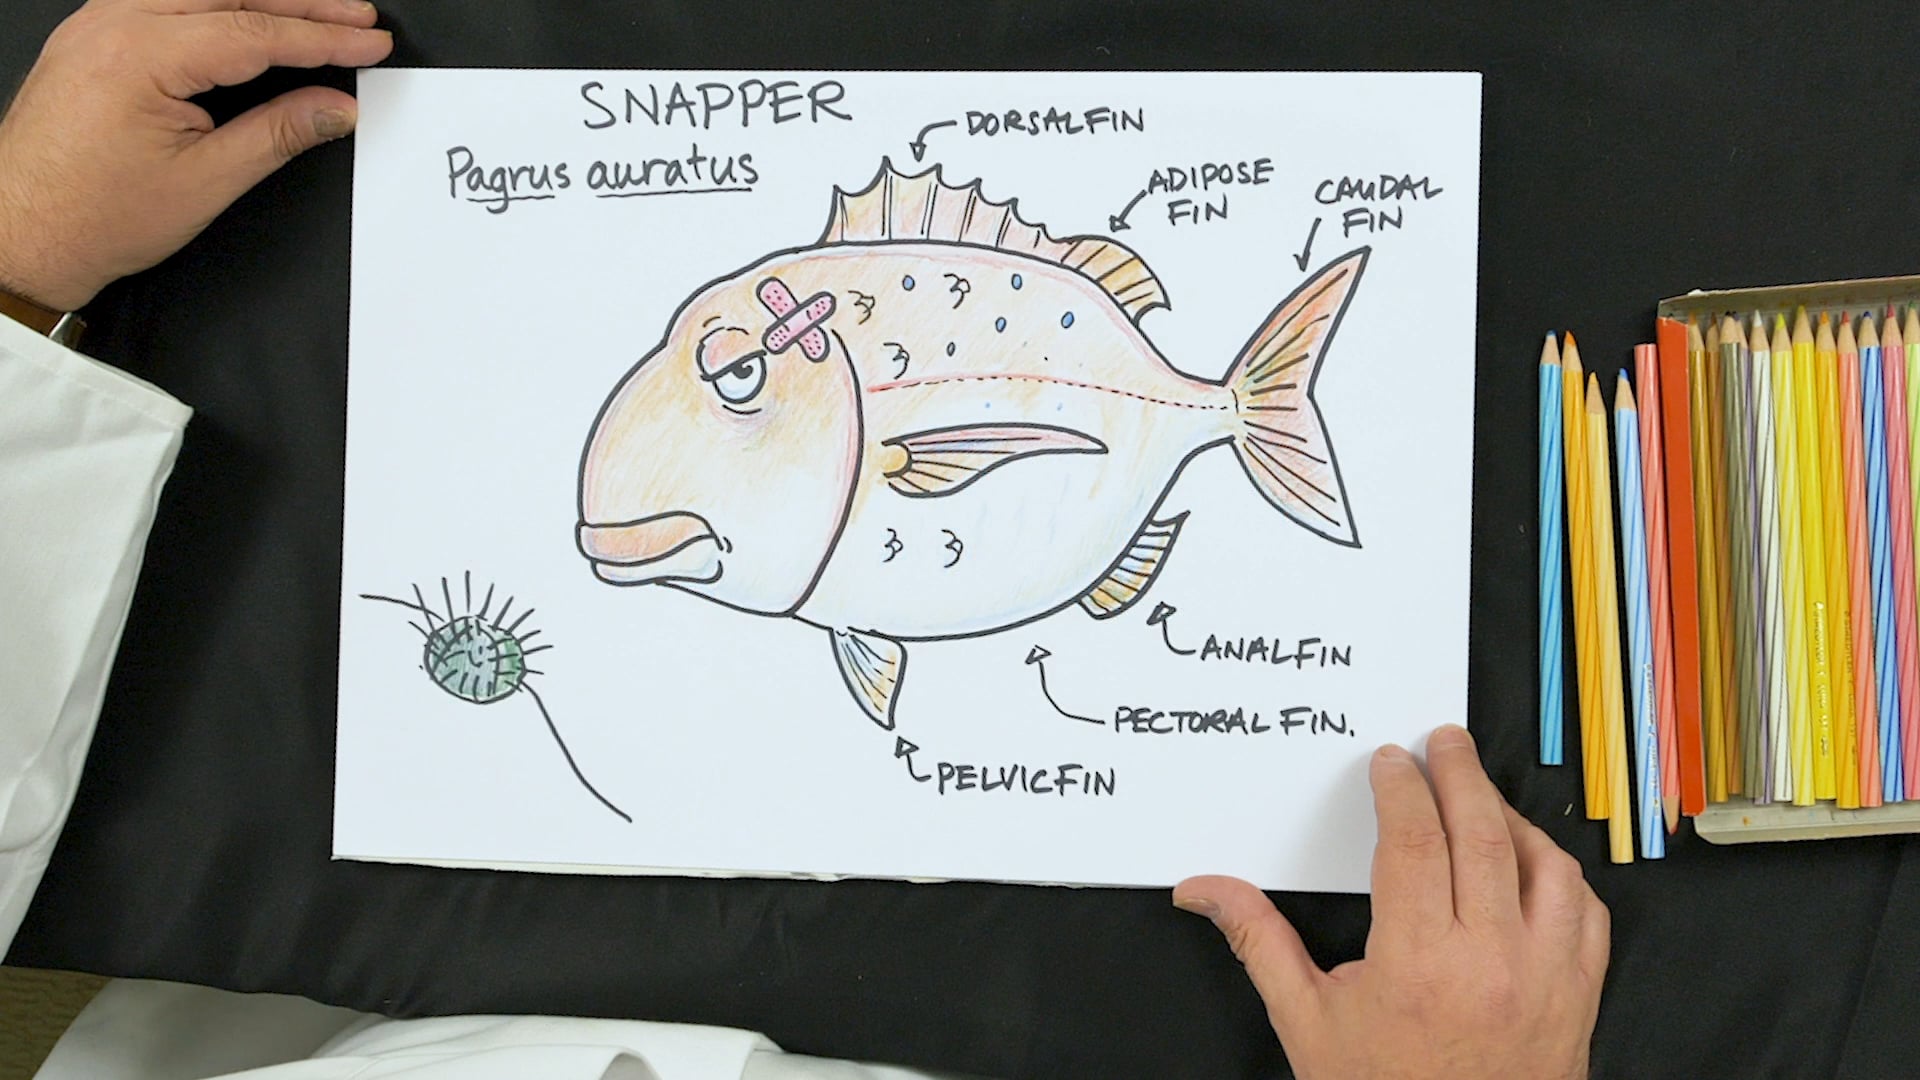 SNAPPER
Pagrus auratus
DORSAL FIN
ADIPOSE
FIN
CAUDAL
FIN
ANAL FIN
PECTORAL FIN.
PELVIC FIN